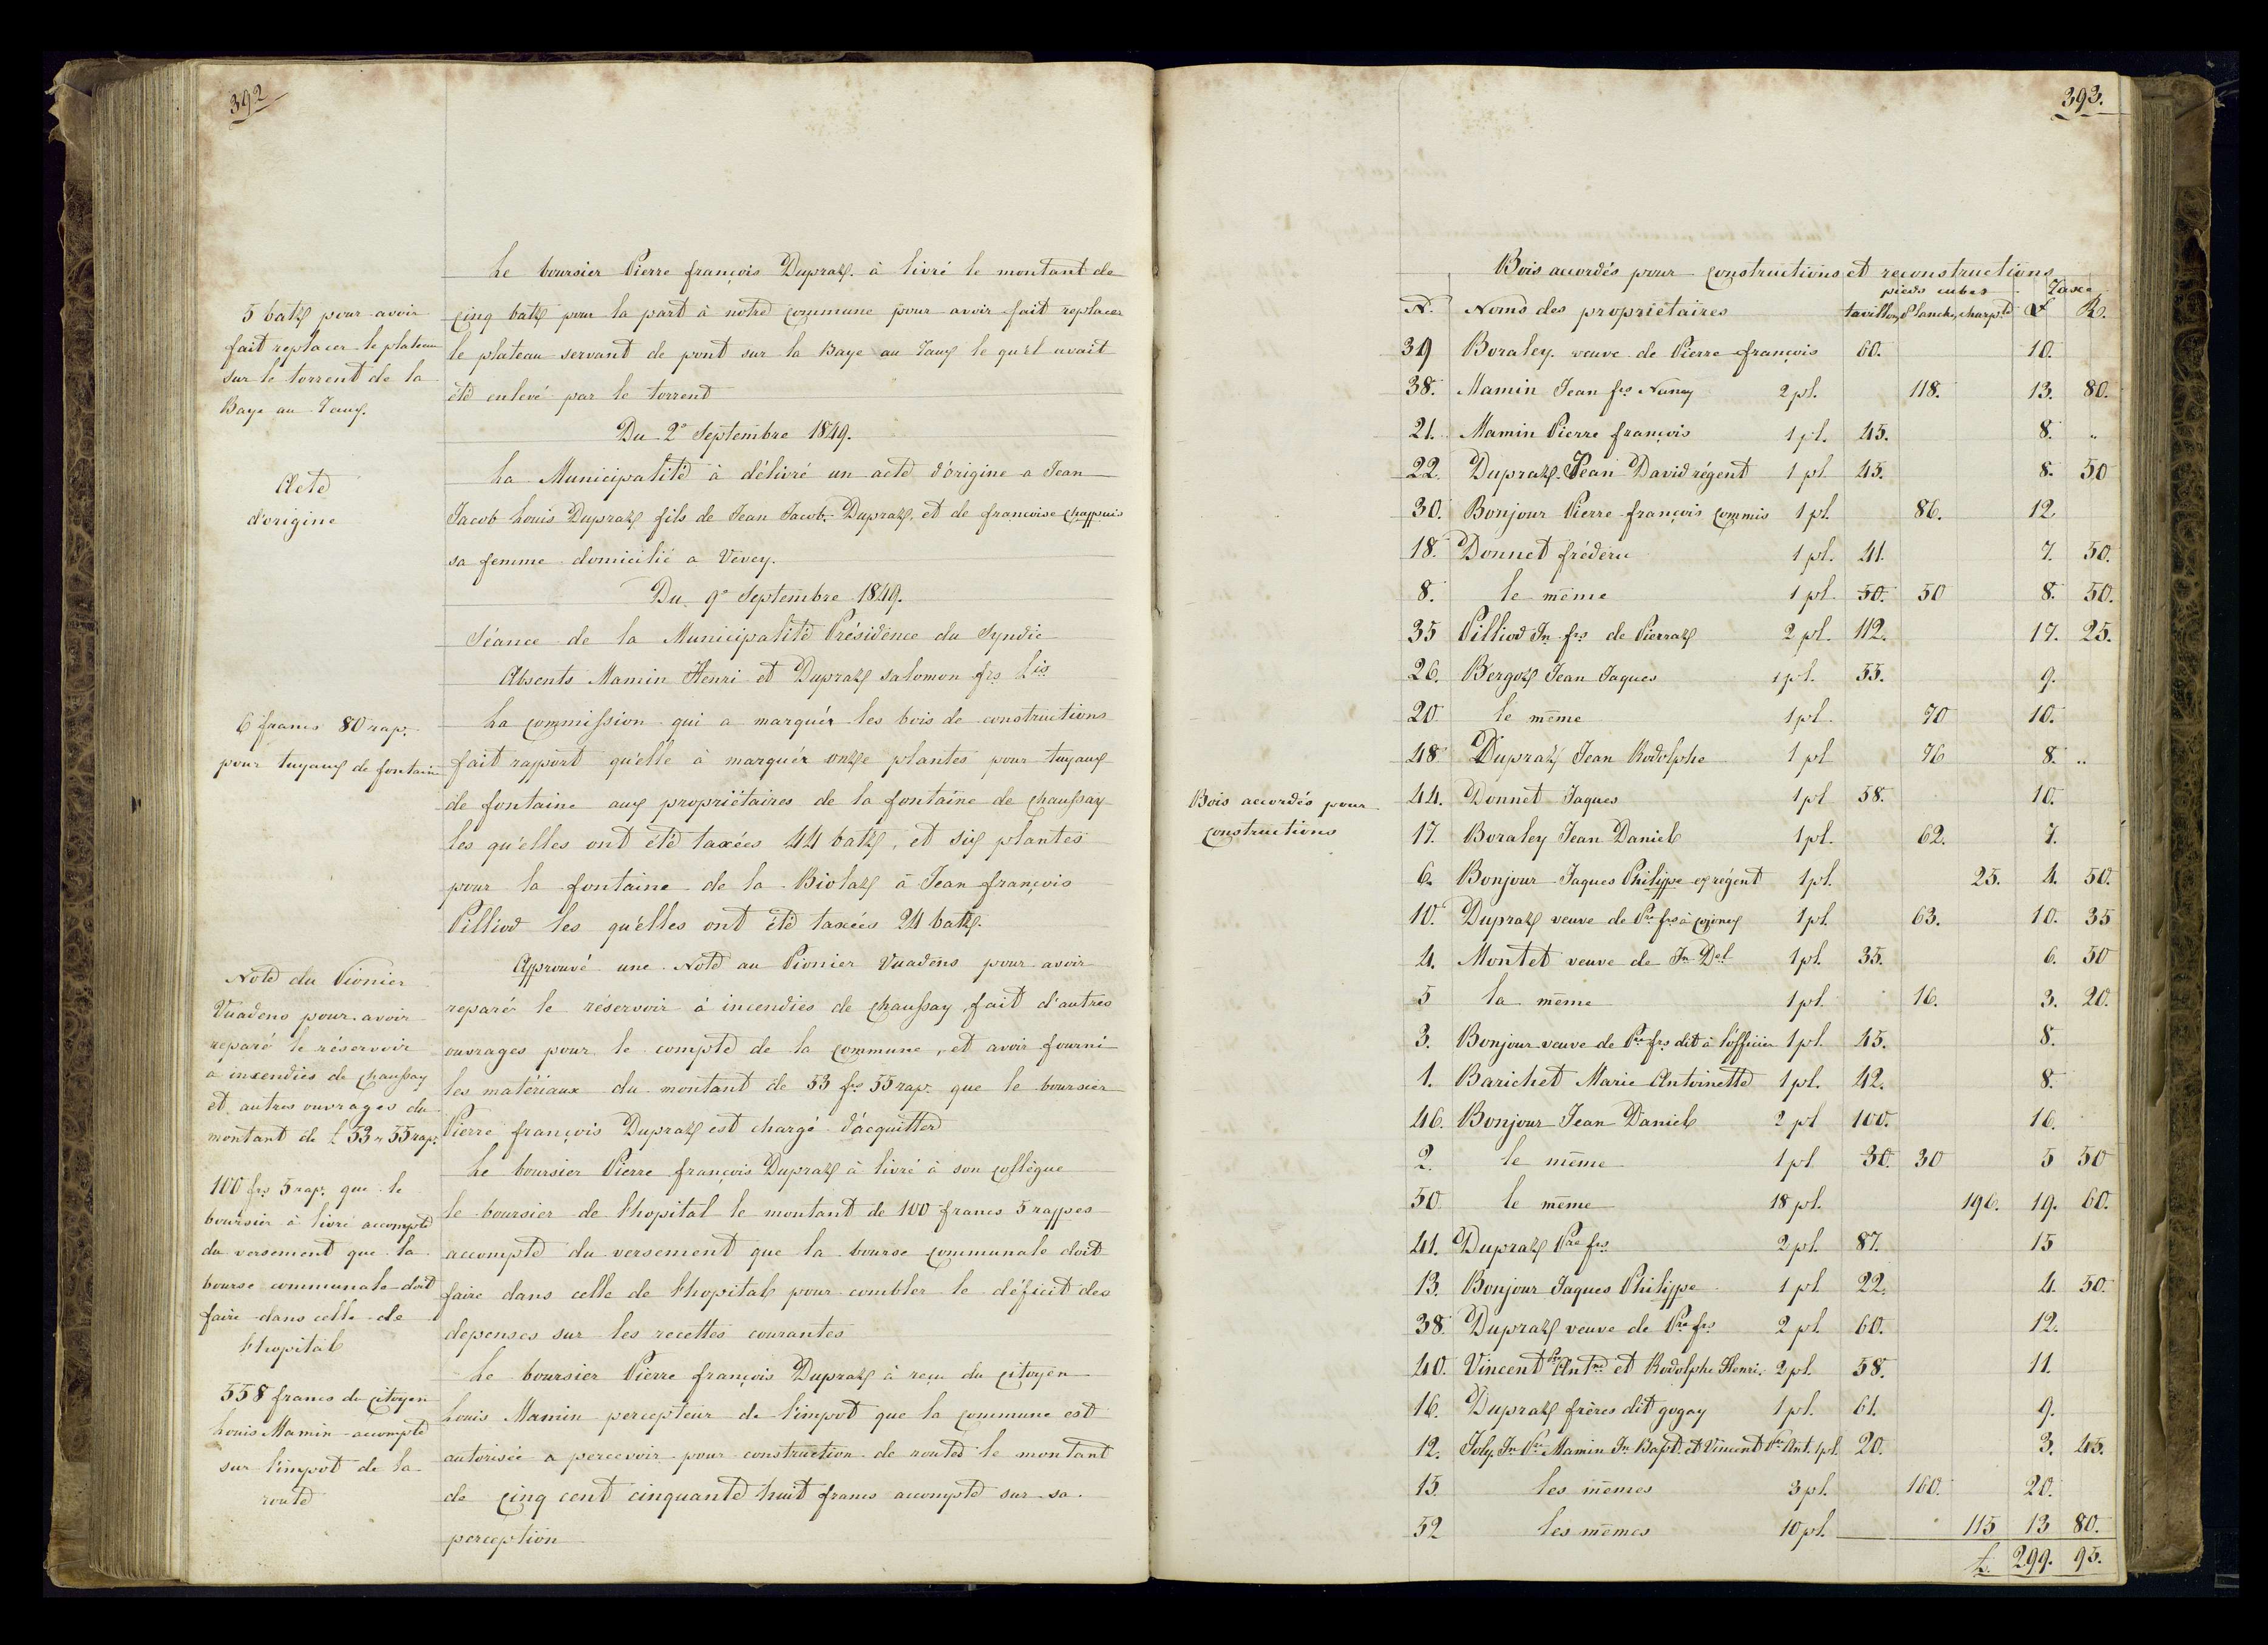 392
Le boursier Pierre françois Dupraz à livré le montant de
5 batz pour avoir
fait replacer le plateau
sur le torrent de la
Baye au Taux.
cinq batz pour la part à notre commune pour avoir fait replacer
le plateau servant de pont sur la Baye au Taux le qu'el avait
été enlevé par le torrent
Du 2e Septembre 1849.
Acte
d'origine
La Municipalité à délivré un acte d'origine a Jean
Jacob Louis Dupraz fils de Jean Jacob Dupraz et de françoise Chappuis
sa femme domicilié a Vevey.
Du 9e Septembre 1849.
Séance de la Municipalité Présidence du Syndic
Absents Mamin Henri et Dupraz salomon frs Lis
6 francs 80 rap.
pour tuyaux de fontaine
La commission qui a marquér les bois de constructions
fait rapport qu'elle à marquér onze plantes pour tuyaux
de fontaine aux propriétaires de la fontaine de Chaussay
les qu'elles ont été taxées 44 batz, et six plantes
pour la fontaine de la Biolaz à Jean françois
Pilliod les qu'elles ont été taxées 24 batz.
Note du Pionier
Vuadens pour avoir
reparé le réservoir
a incendies de Chaussay
et autres ouvrages du
montant de £ 53 " 55 rap.
Approuvé une Note au Pionier Vuadens pour avoir
reparé le réservoir à incendies de Chaussay fait d'autres
ouvrages pour le compte de la commune, et avoir fourni
les matériaux du montant de 53 frs 55 rap. que le boursier
Pierre françois Dupraz est chargé d'acquitter
100 frs 5 rap. que le
boursier à livré accompte
du versement que la
bourse communale doit
faire dans celle de
l'hopital
Le boursier Pierre françois Dupraz à livré à son collègue
le boursier de l'hopital le montant de 100 francs 5 rappes
accompte du versement que la bourse communale doit
faire dans celle de l'hopital pour combler le déficit des
depenses sur les recettes courantes
558 francs du citoyen
Louis Mamin accompte
sur l'impot de la
route
Le boursier Pierre françois Dupraz à reçu du citoyen
Louis Mamin percepteur de l'impot que la commune est
autorisée a percevoir pour construction de routes le montant
de cinq cent cinquante huit francs accompte sur sa
perception
393.
Bois accordés pour
constructions
Bois accordés pour constructions et reconstructions
pieds cubes Taxe
N. Noms des propriétaires tavillon, Planche, charpte £ R.
39 Boraley veuve de Pierre françois 60. 10.
38. Mamin Jean frs Nancy 2 pl. 118. 13. 80.
21. Mamin Pierre françois 1 pl. 45. 8. "
22. Dupraz Jean David régent 1 pl 45. 8. 50
30. Bonjour Pierre françois commis 1 pl. 86. 12
18. Donnet fréderic 1 pl. 41. 7. 50.
8. le même 1 pl. 50. 50 8. 50.
35 Pilliod Jn frs de Pierraz 2 pl. 112. 17. 25.
26. Bergoz Jean Jaques 1 pl. 55. 9.
20 le même 1 pl. 70 10.
48 Dupraz Jean Rodolphe 1 pl 76 8. "
44. Donnet Jaques 1 pl 58. 10.
17. Boraley Jean Daniel 1 pl. 62. 7.
6. Bonjour Jaques Philippe ex régent 1 pl. 25. 4. 50.
10. Dupraz veuve de Pre frs à 1 pl. 63. 10. 35
4. Montet veuve de Jn Del 1 pl. 35. 6. 50
5 la même 1 pl. 16. 3. 20.
3. Bonjour veuve de Pre frs dit à l'officier 1 pl. 45. 8.
1. Barichet Marie Antoinette 1 pl. 42. 8.
46. Bonjour Jean Daniel 2 pl 100. 16.
2. le même 1 pl 30. 30 5 50
50 le même 18 pl. 196. 19. 60.
41. Dupraz Pre frs 2 pl. 87. 15
13. Bonjour Jaques Philippe 1 pl 22. 4. 50.
38. Dupraz veuve de Pre frs 2 pl. 60. 12.
40. Vincent Pre Antne et Rodolphe Henri 2 pl. 58. 11.
16. Dupraz frères dit gogay 1 pl. 61. 9.
12. Joly Jn Pre Mamin Jn Bapt. et Vincent Pre Ant. 1 pl. 20. 3. 45.
15 les mêmes 3 pl. 160. 20.
52 les mêmes 10 pl. 115 13 80.
£. 299. 95.